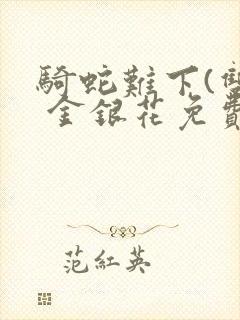 騎蛇難下(雙
金銀花免費
范紅英